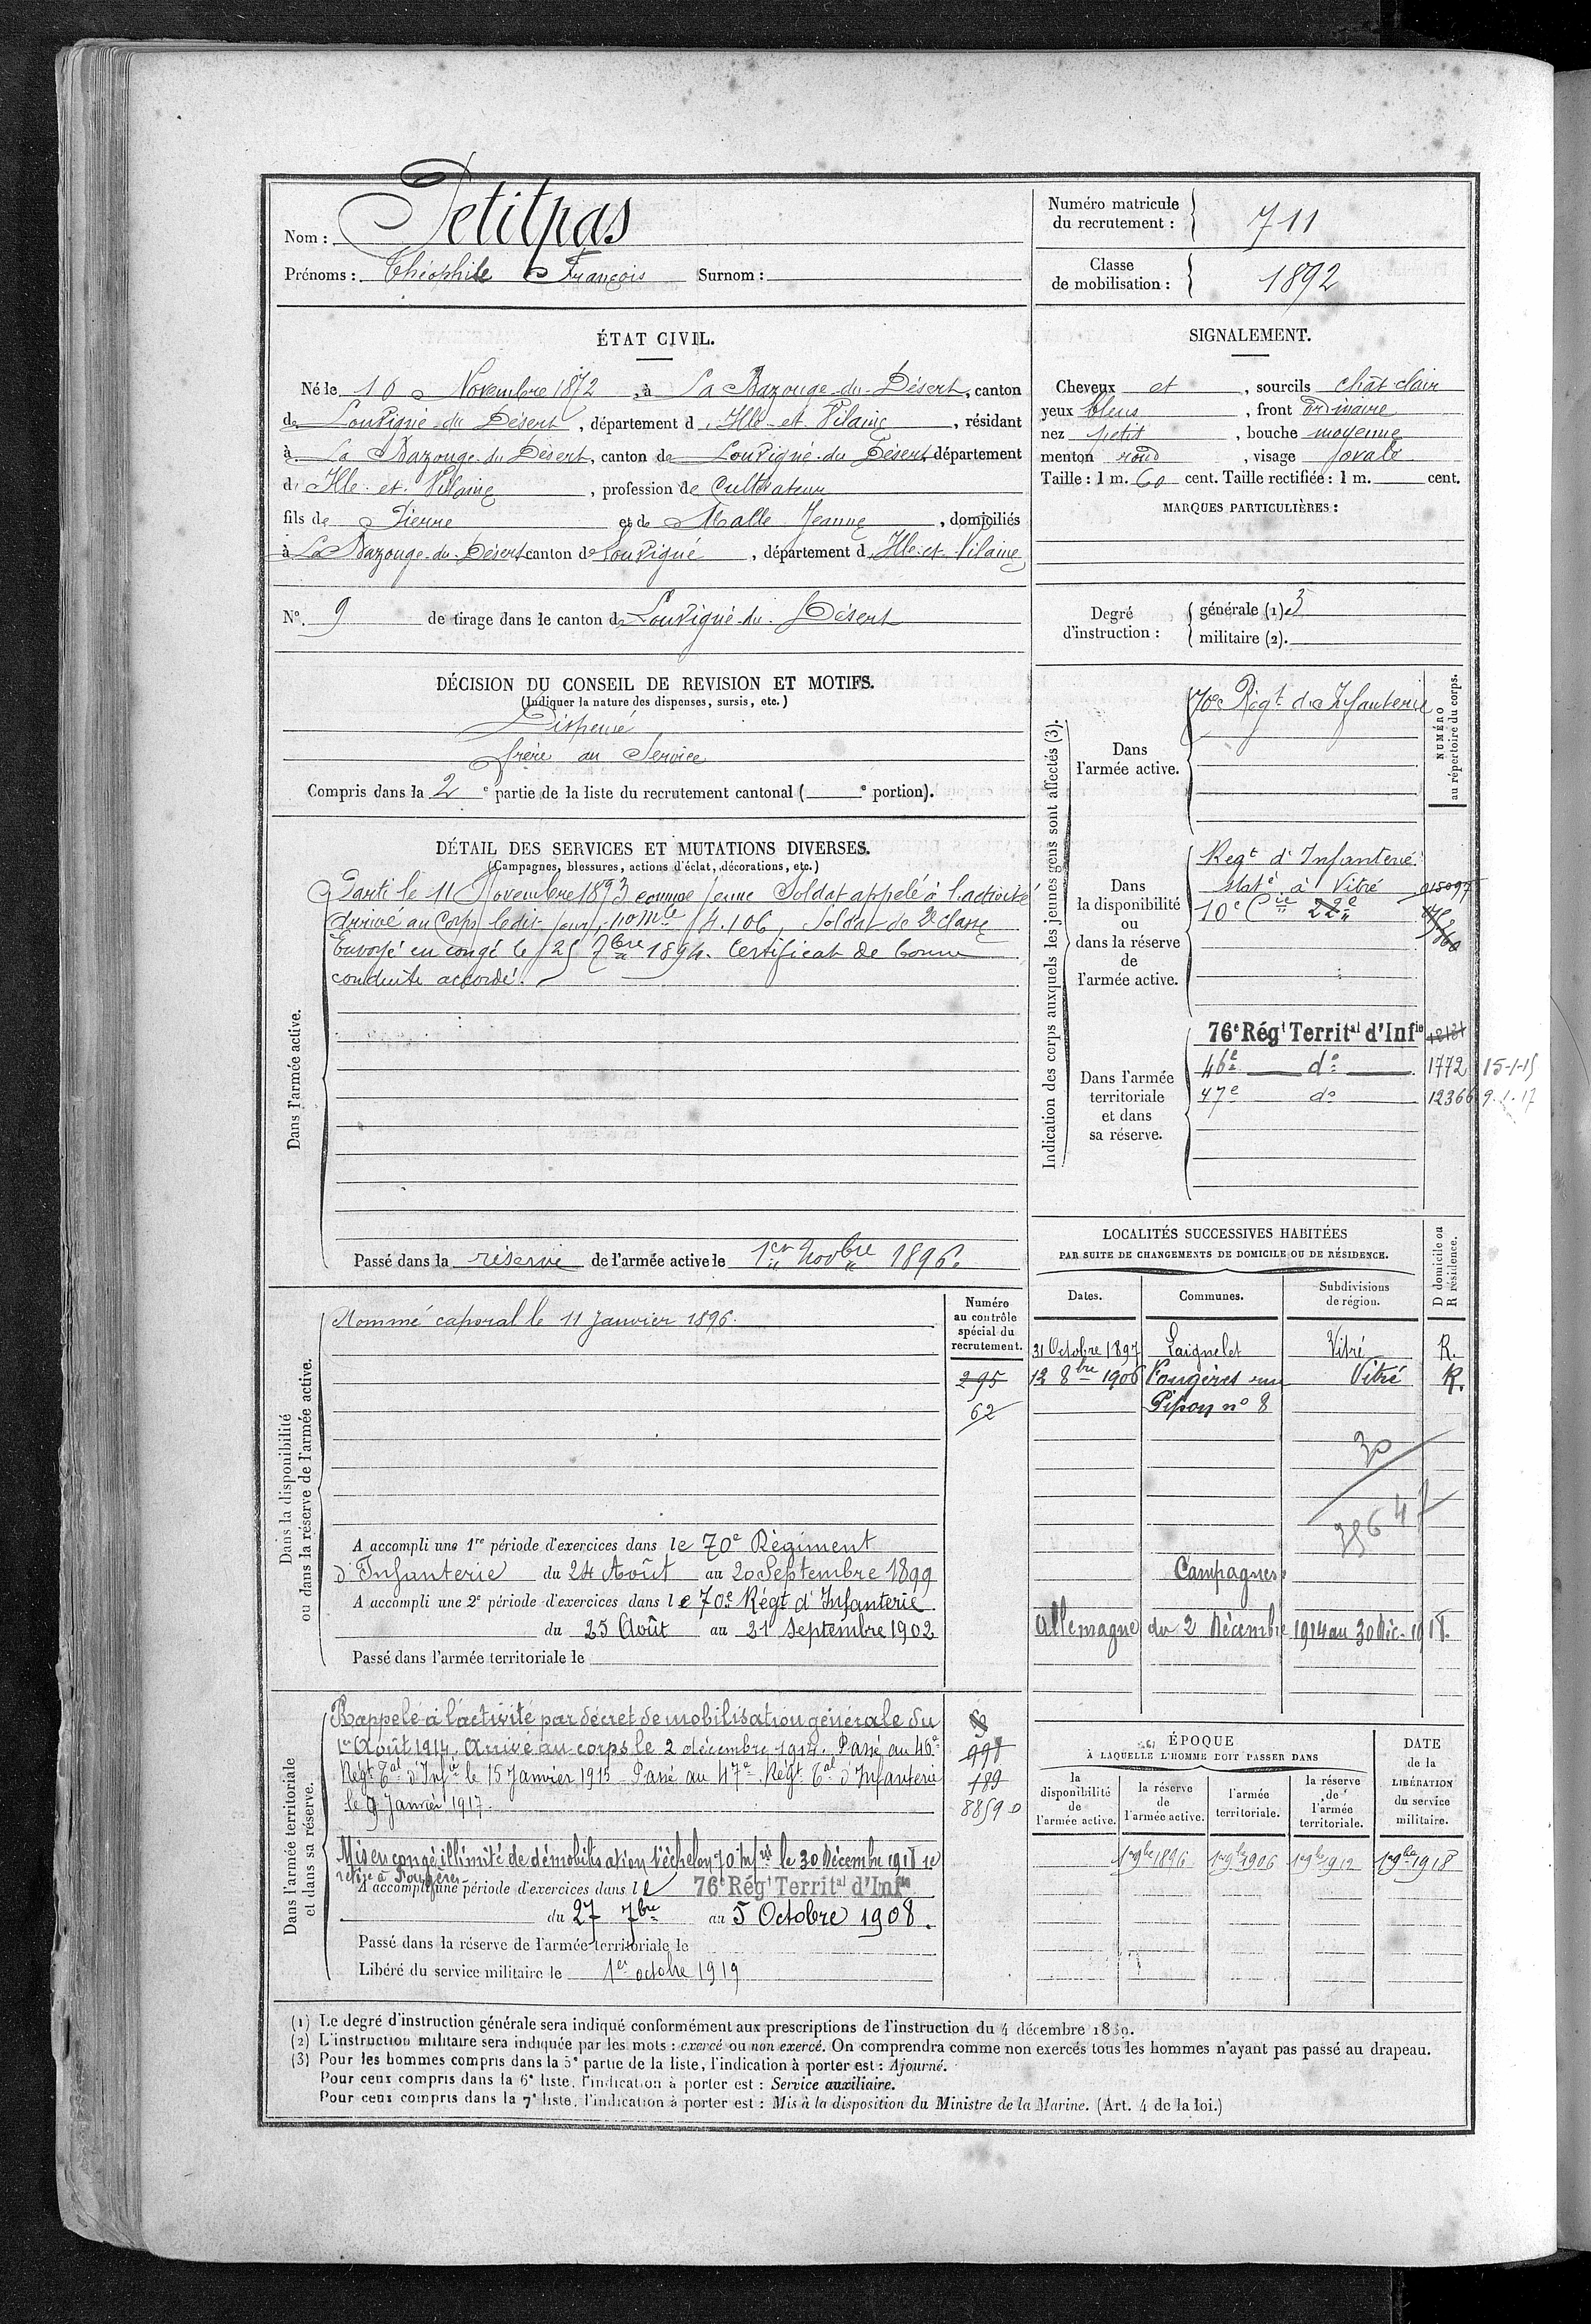 Nom : Petitpas
Prénoms : Théophile François Surnom :
Numéro matricule du recrutement : 711
Classe de mobilisation : 1892
ÉTAT CIVIL.
Né le 10 Novembre 1872, à La Bazouge-du-Désert, canton
de Louvigné-du-Désert, département d'Ille-et-Vilaine, résidant
à La Bazouge-du-Désert, canton de Louvigné-du-Désert, département
d'Ille-et-Vilaine, profession de Cultivateur
fils de Pierre et de Malle Jeanne, domiciliés
à La Bazouge-du-Désert canton de Louvigné, département d'Ille-et-Vilaine
No. 9 de tirage dans le canton de Louvigné-du-Désert
SIGNALEMENT.
Cheveux et, sourcils chât clair
yeux bleus, front ordinaire
nez petit, bouche moyenne
menton rond, visage ovale
Taille : 1 m. 60 cent. Taille rectifiée : 1 m. cent.
MARQUES PARTICULIÈRES :
Degré d'instruction :
générale (1) 3
militaire (2).
DÉCISION DU CONSEIL DE REVISION ET MOTIFS.
(Indiquer la nature des dispenses, sursis, etc.)
Dispensé
frère au Service
Compris dans la 2e partie de la liste du recrutement cantonal ( e portion).
DÉTAIL DES SERVICES ET MUTATIONS DIVERSES.
(Campagnes, blessures, actions d'éclat, décorations, etc.)
Dans l'armée active.
Parti le 11 Novembre 1893 comme jeune Soldat appelé à l'activité
Arrivé au Corps ledit jour, no mle 4.106, Soldat de 2e classe
Envoyé en congé le 25 7bre 1894. Certificat de bonne
conduite accordé.
Passé dans la réserve de l'armée active le 1er Novbre 1896.
Indication des corps auxquels les jeunes gens sont affectés (3).
NUMÉRO au répertoire du corps.
Dans l'armée active.
70e Régt d'Infanterie
Dans la disponibilité ou dans la réserve de l'armée active.
Regt d'Infanterie
staté à Vitré
10e Cie 22e
Dans l'armée territoriale et dans sa réserve.
76e Régt Territal d'Infie
46e do 1772 15-1-15
47e do 12366 9.1.17
LOCALITÉS SUCCESSIVES HABITÉES
PAR SUITE DE CHANGEMENTS DE DOMICILE OU DE RÉSIDENCE.
Dates. Communes. Subdivisions de région. D domicile ou R résidence.
31 Octobre 1897 Laignelet Vitré R.
12 8bre 1906 Fougères rue Vitré R.
Pipon no 8
Campagnes.
Allemagne du 2 Décembre 1914 au 30 Déc. 1918.
Dans la disponibilité ou dans la réserve de l'armée active.
Numéro au contrôle spécial du recrutement.
295
62
Nommé caporal le 11 Janvier 1896.
A accompli une 1re période d'exercices dans le 70e Régiment
d'Infanterie du 24 Août au 20 Septembre 1899
A accompli une 2e période d'exercices dans le 70e Régt d'Infanterie
du 25 Août au 21 Septembre 1902
Passé dans l'armée territoriale le
Dans l'armée territoriale et dans sa réserve.
Rappelé à l'activité par décret de mobilisation générale du
1er Août 1914. Arrivé au corps le 2 décembre 1914. Passé au 46e
Régt Tal d'Infie le 15 Janvier 1915 Passé au 47e Régt Tal d'Infanterie
le 9 Janvier 1917.
998
189
88590
Mis en congé illimité de démobilisation 1er échelon 70 Infrie le 30 Décembre 1918 se
retire à Fougères
A accompli une période d'exercices dans le 76e Régt Territal d'Infie
du 27 7bre au 5 Octobre 1908.
Passé dans la réserve de l'armée territoriale le
Libéré du service militaire le 1er octobre 1919
ÉPOQUE
À LAQUELLE L'HOMME DOIT PASSER DANS
la disponibilité de l'armée active. la réserve de l'armée active. l'armée territoriale. la réserve de l'armée territoriale.
DATE de la LIBÉRATION du service militaire.
1er 9bre 1896 1er 9bre 1906 1er 9bre 1912 1er 9bre 1918
(1) Le degré d'instruction générale sera indiqué conformément aux prescriptions de l'instruction du 4 décembre 1889.
(2) L'instruction militaire sera indiquée par les mots : exercé ou non exercé. On comprendra comme non exercés tous les hommes n'ayant pas passé au drapeau.
(3) Pour les hommes compris dans la 5e partie de la liste, l'indication à porter est : Ajourné.
Pour ceux compris dans la 6e liste, l'indication à porter est : Service auxiliaire.
Pour ceux compris dans la 7e liste, l'indication à porter est : Mis à la disposition du Ministre de la Marine. (Art. 4 de la loi.)